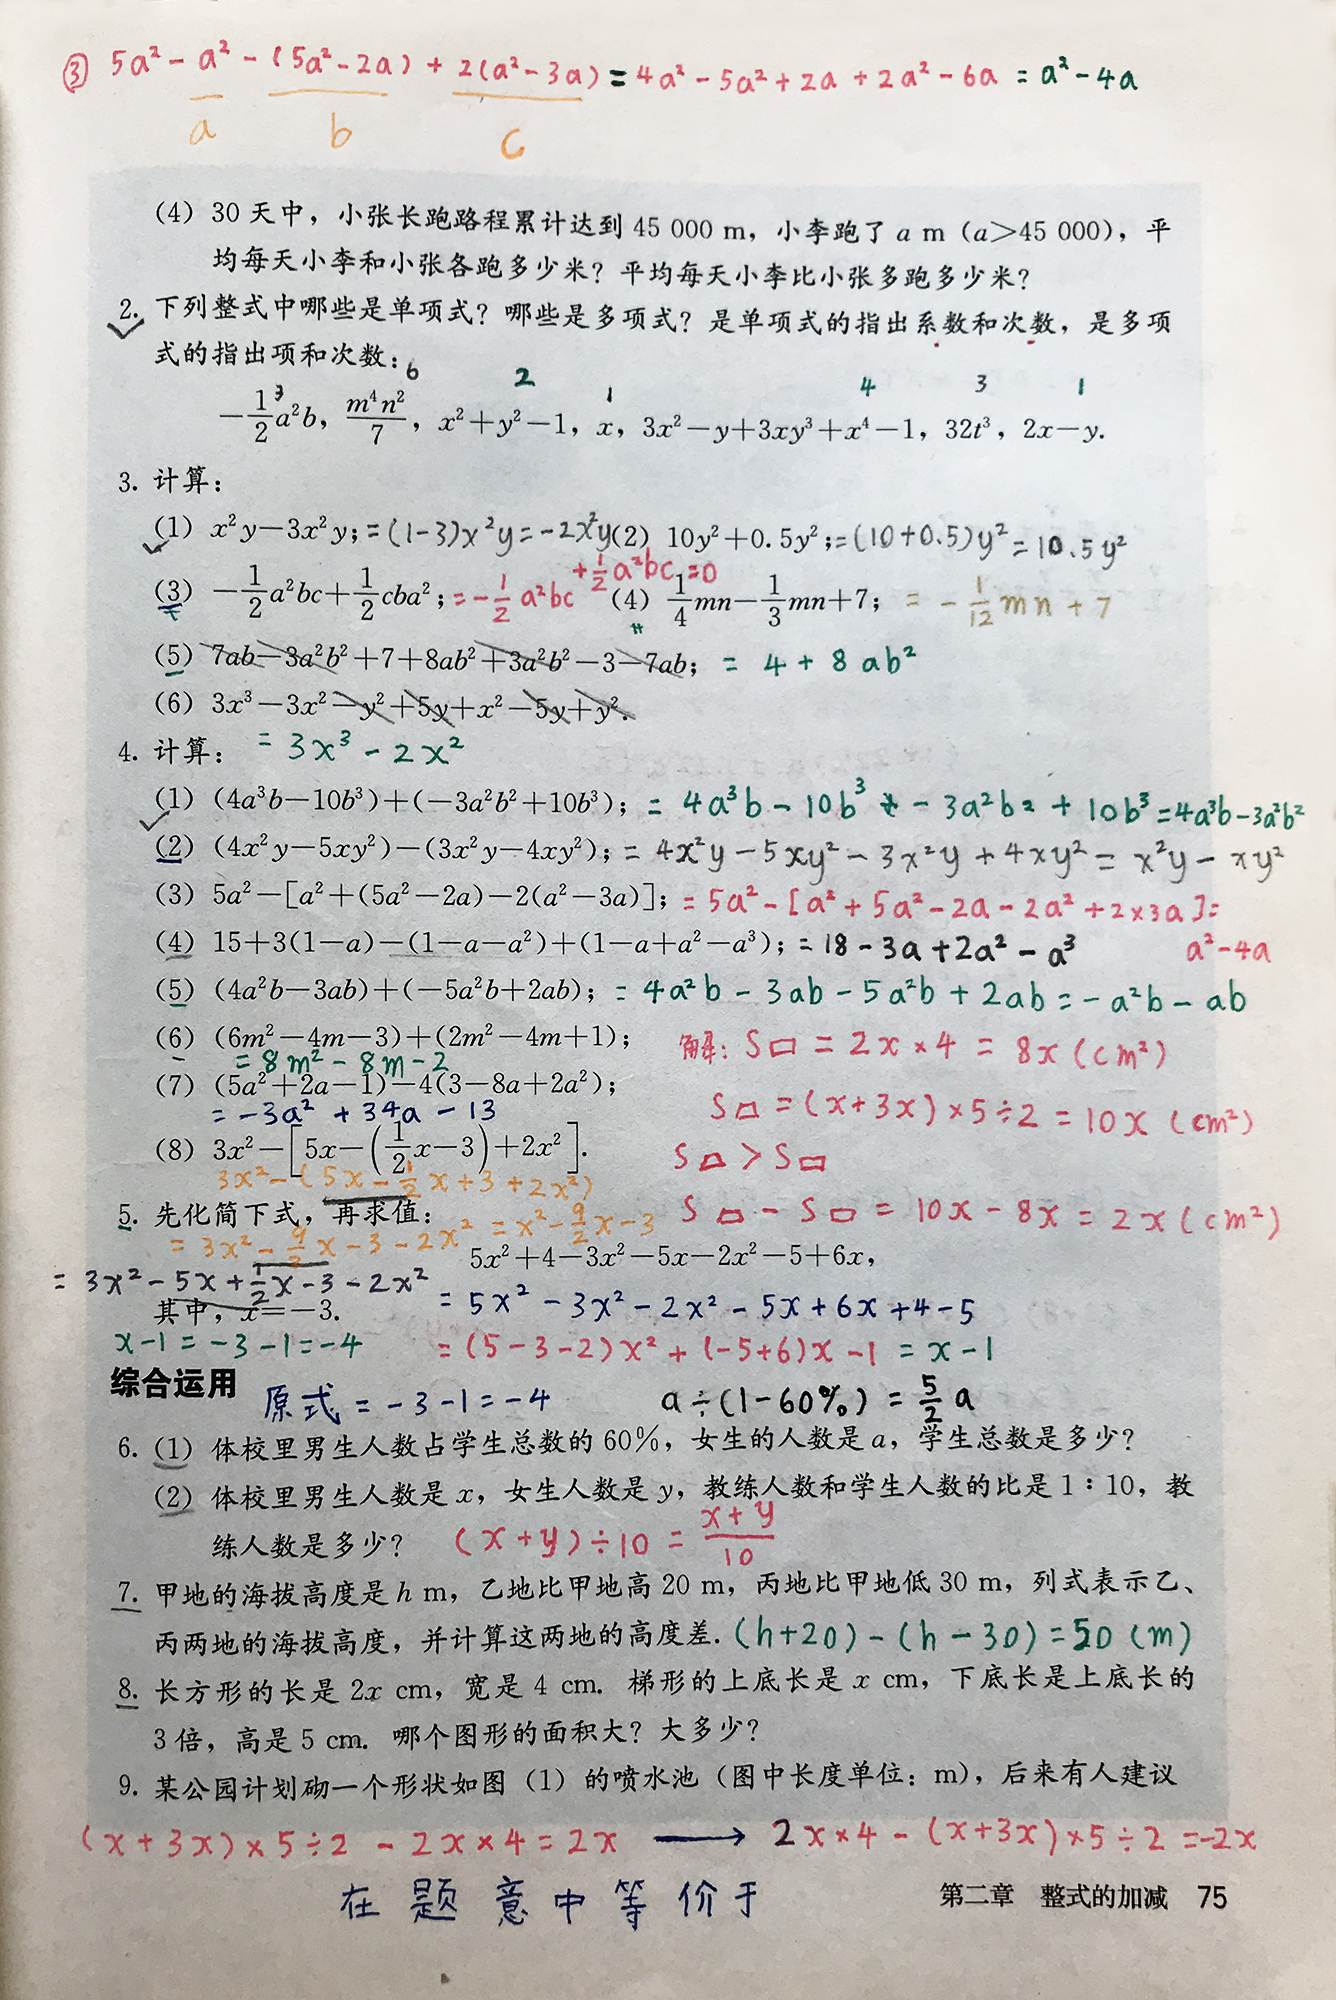 ③ 5a²-a²-(5a²-2a)+2(a²-3a)=4a²-5a²+2a+2a²-6a=a²-4a
a b c
(4) 30天中，小张长跑路程累计达到45 000 m，小李跑了a m（a>45 000），平
均每天小李和小张各跑多少米？平均每天小李比小张多跑多少米？
2. 下列整式中哪些是单项式？哪些是多项式？是单项式的指出系数和次数，是多项
式的指出项和次数：
3 6 2 1 4 3 1
-1/2a²b, m⁴n²/7, x²+y²-1, x, 3x²-y+3xy³+x⁴-1, 32t³, 2x-y.
3. 计算：
(1) x²y-3x²y; =(1-3)x²y=-2x²y (2) 10y²+0.5y²; =(10+0.5)y²=10.5y²
(3) -1/2a²bc+1/2cba²; =-1/2a²bc+1/2a²bc=0 (4) 1/4mn-1/3mn+7; =-1/12mn+7
(5) 7ab-3a²b²+7+8ab²+3a²b²-3-7ab; =4+8ab²
(6) 3x³-3x²-y²+5y+x²-5y+y².
=3x³-2x²
4. 计算：
(1) (4a³b-10b³)+(-3a²b²+10b³); =4a³b-10b³+-3a²b²+10b³=4a³b-3a²b²
(2) (4x²y-5xy²)-(3x²y-4xy²); =4x²y-5xy²-3x²y+4xy²=x²y-xy²
(3) 5a²-[a²+(5a²-2a)-2(a²-3a)]; =5a²-[a²+5a²-2a-2a²+2×3a]=
a²-4a
(4) 15+3(1-a)-(1-a-a²)+(1-a+a²-a³); =18-3a+2a²-a³
(5) (4a²b-3ab)+(-5a²b+2ab); =4a²b-3ab-5a²b+2ab=-a²b-ab
(6) (6m²-4m-3)+(2m²-4m+1);
=8m²-8m-2
(7) (5a²+2a-1)-4(3-8a+2a²);
=-3a²+34a-13
(8) 3x²-[5x-(1/2x-3)+2x²].
3x²-(5x-1/2x+3+2x²)
解: S▭=2x×4=8x(cm²)
S⏢=(x+3x)×5÷2=10x(cm²)
S⏢>S▭
S⏢-S▭=10x-8x=2x(cm²)
5. 先化简下式，再求值：
=3x²-9/2x-3-2x²=x²-9/2x-3
5x²+4-3x²-5x-2x²-5+6x,
=3x²-5x+1/2x-3-2x²
其中，x=-3.
=5x²-3x²-2x²-5x+6x+4-5
x-1=-3-1=-4
=(5-3-2)x²+(-5+6)x-1=x-1
综合运用
原式=-3-1=-4
a÷(1-60%)=5/2a
6. (1) 体校里男生人数占学生总数的60%，女生的人数是a，学生总数是多少？
(2) 体校里男生人数是x，女生人数是y，教练人数和学生人数的比是1∶10，教
练人数是多少？ (x+y)÷10=x+y/10
7. 甲地的海拔高度是h m，乙地比甲地高20 m，丙地比甲地低30 m，列式表示乙、
丙两地的海拔高度，并计算这两地的高度差. (h+20)-(h-30)=50(m)
8. 长方形的长是2x cm，宽是4 cm. 梯形的上底长是x cm，下底长是上底长的
3倍，高是5 cm. 哪个图形的面积大？大多少？
9. 某公园计划砌一个形状如图（1）的喷水池（图中长度单位：m），后来有人建议
(x+3x)×5÷2-2x×4=2x → 2x×4-(x+3x)×5÷2=-2x
在题意中等价于
第二章 整式的加减 75